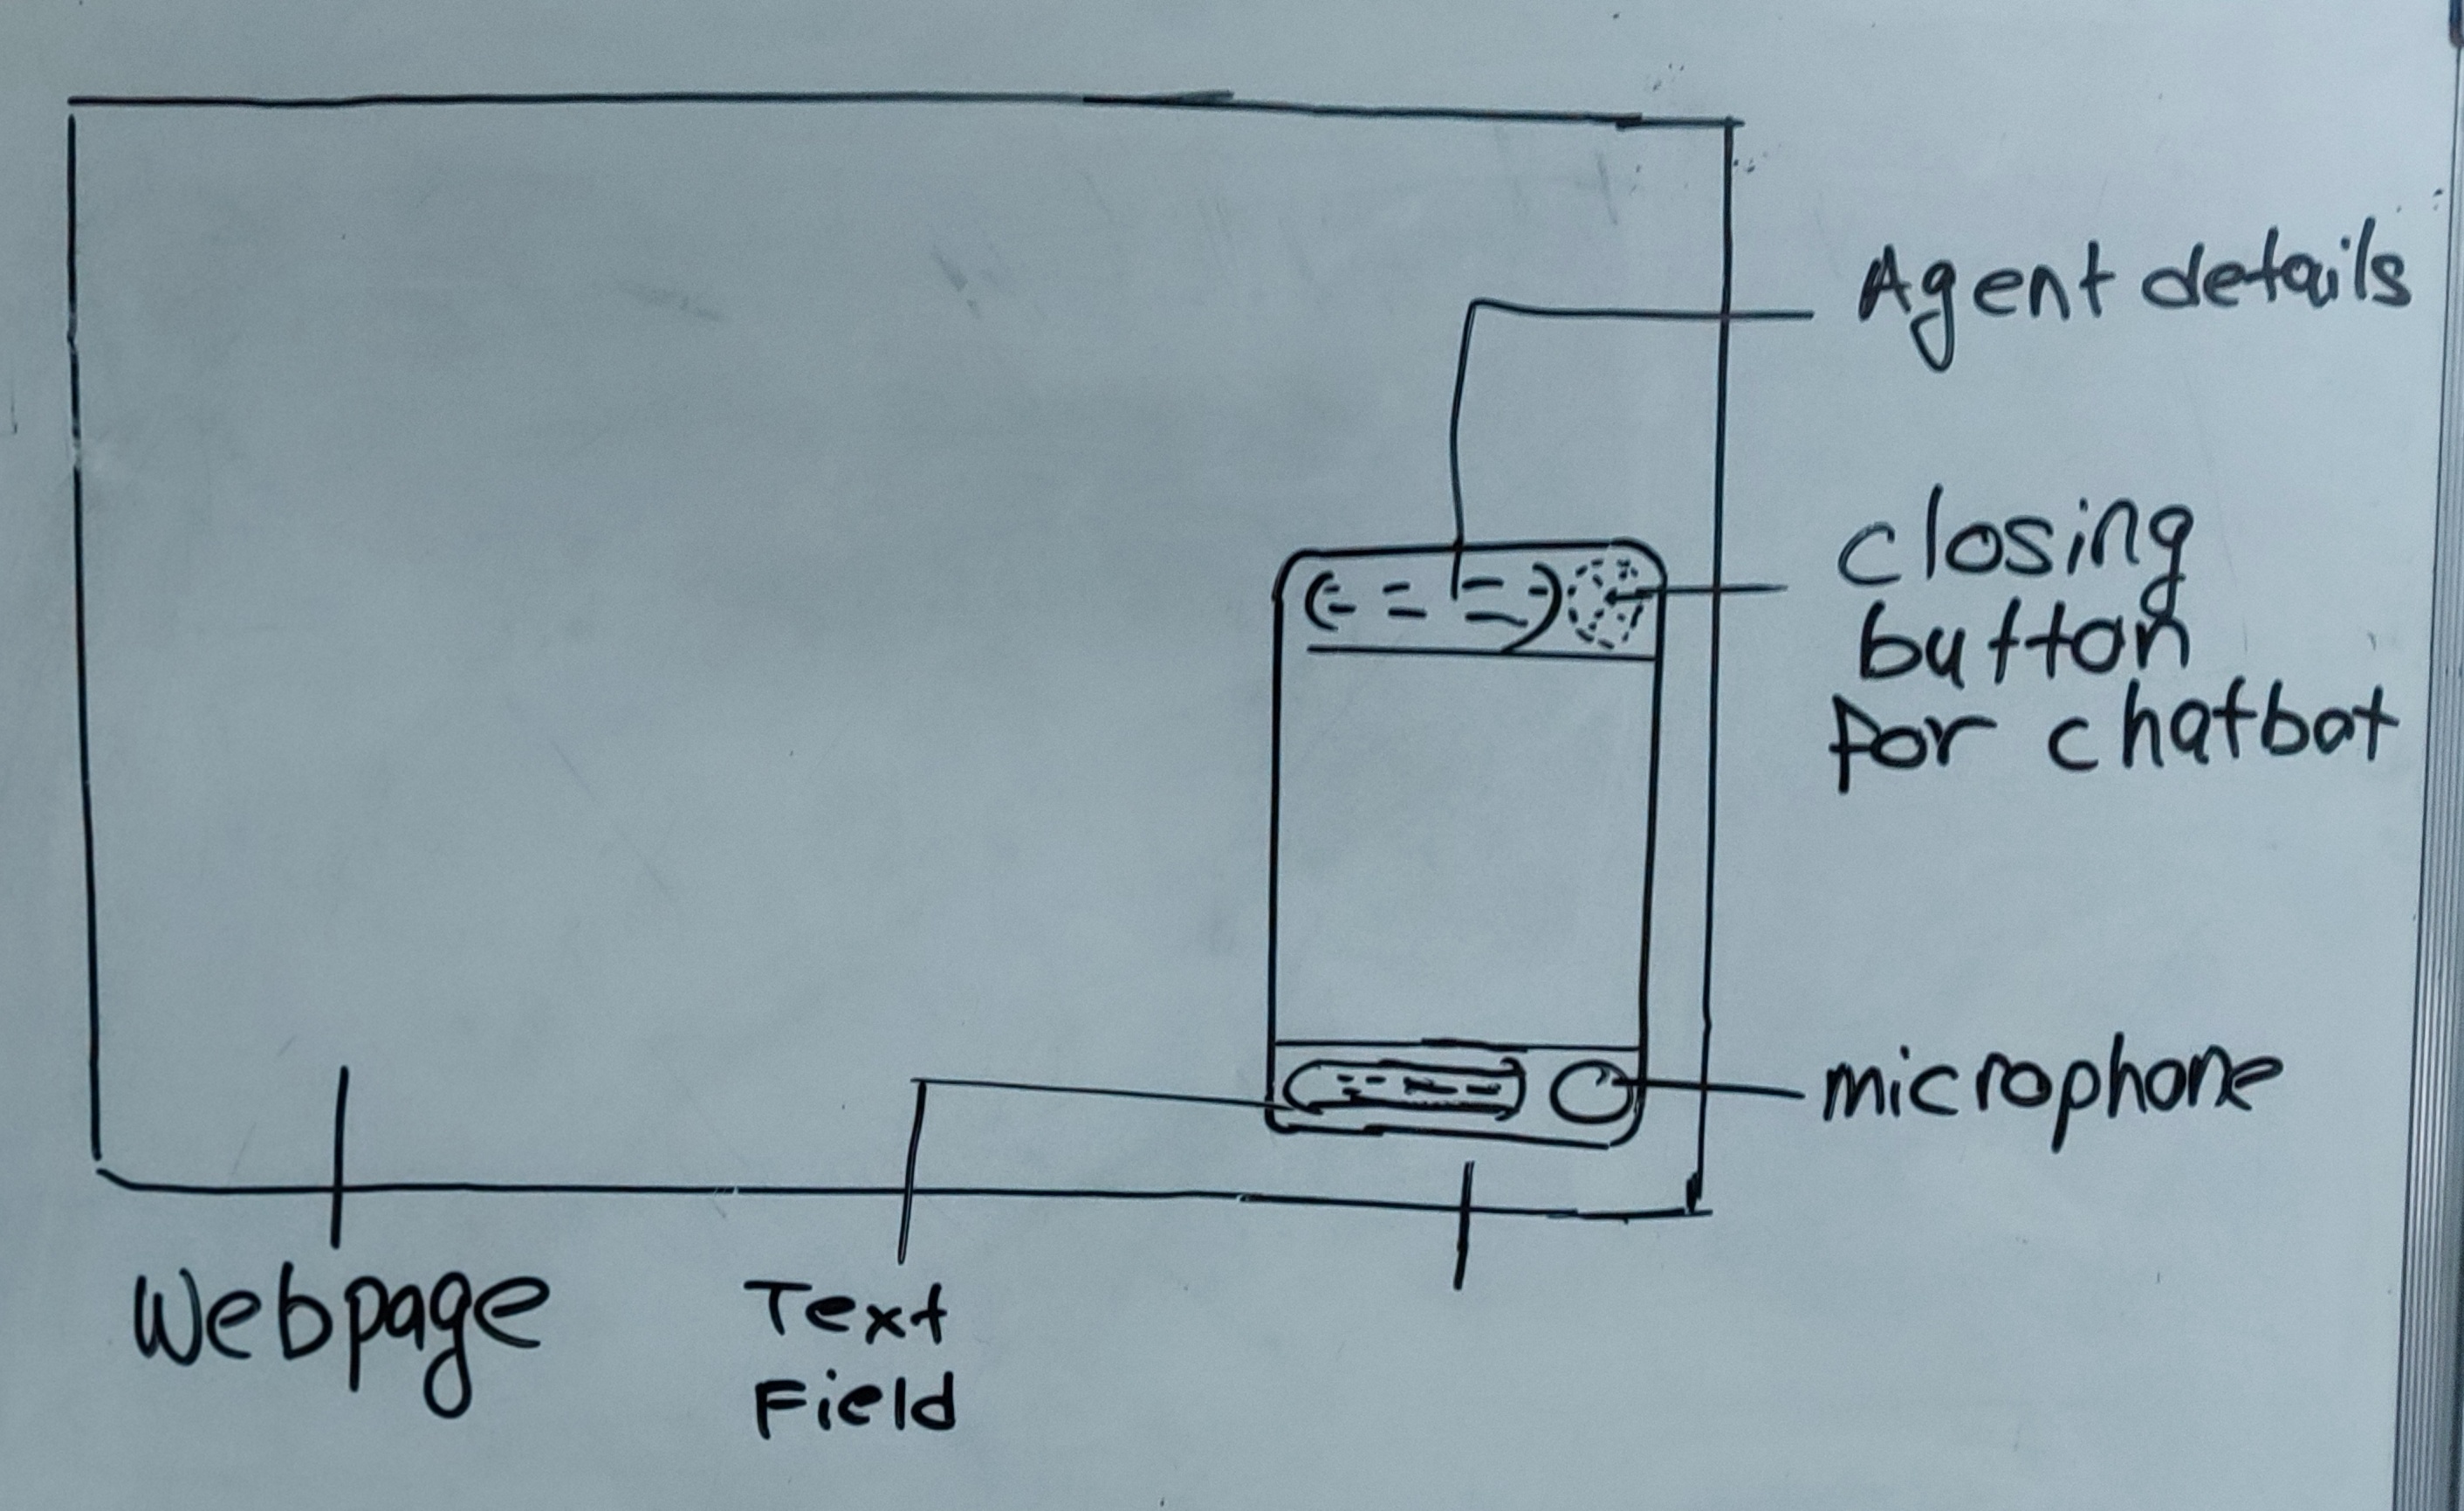 Agent details
closing
button
for chatbot
microphone
Webpage
Text
Field